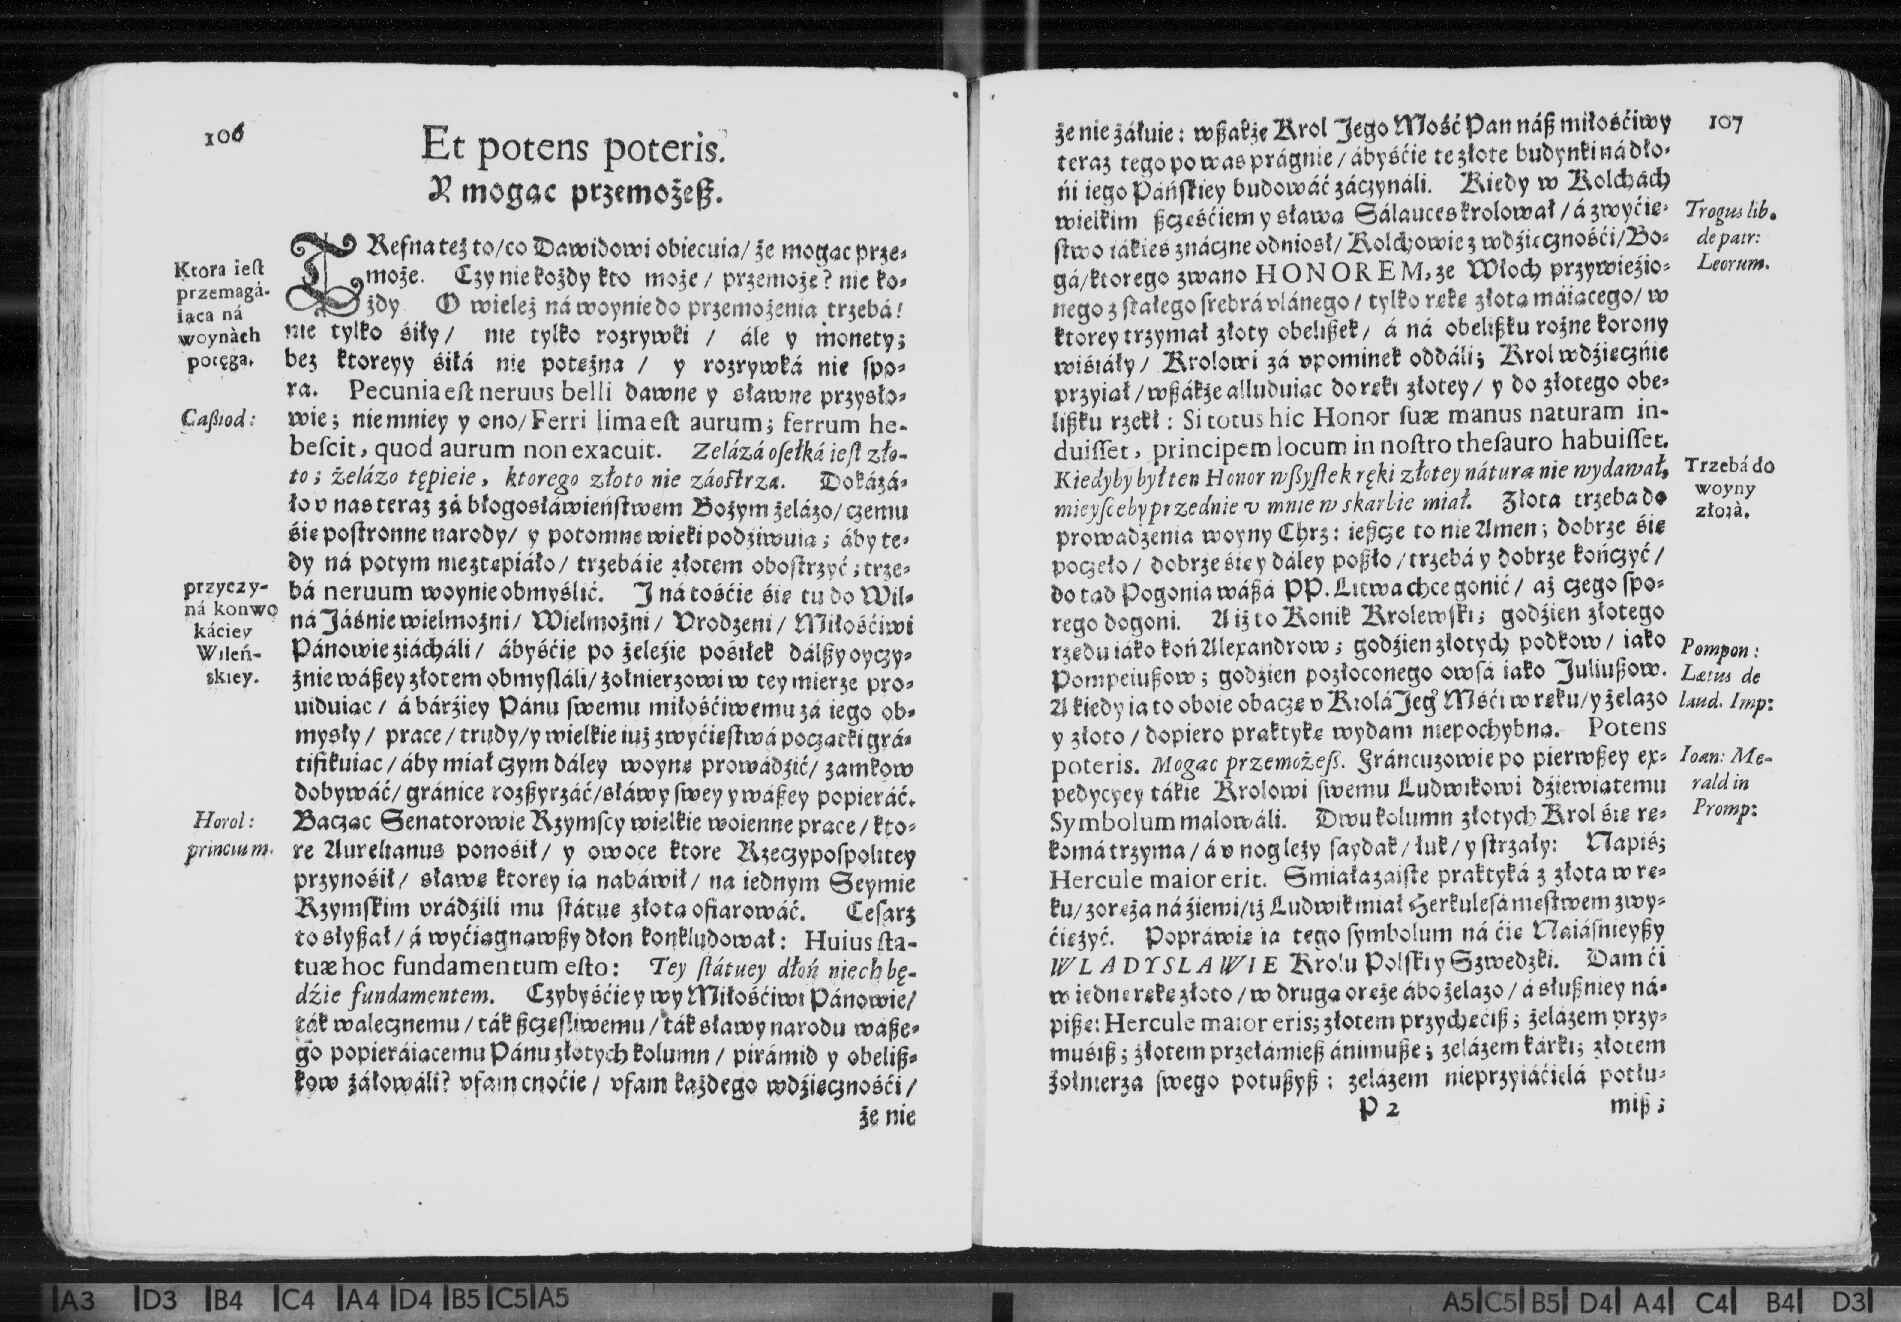 106
Et potens poteris.
Y mogąc przemożeß.
TResna też to/co Dawidowi obiecuią/ że mogąc prze-
może. Czy nie kożdy kto może / przemoże? nie ko-
żdy. O wieleż ná woynie do przemożenia trzebá!
nie tylko śiły/ nie tylko rozrywki / ále y monety;
bez ktoreyy śiłá nie potężna / y rozrywká nie spo-
ra. Pecunia est neruus belli dawne y sławne przysło-
wie; niemniey y ono/ Ferri lima est aurum; ferrum he-
bescit, quod aurum non exacuit. Zelázá osełká iest zło-
to; żelázo tępieie, ktorego złoto nie záostrza. Dokázá-
ło v nas teraz zá błogosłáwieństwem Bożym żelázo/ czemu
śię postronne narody/ y potomne wieki podźiwuią; áby te-
dy ná potym nieztępiáło/ trzebá ie złotem obostrzyć; trze-
bá neruum woynie obmyślić. J ná tośćie śię tu do Wil-
ná Jáśnie wielmożni/ Wielmożni/ Vrodzeni/ Miłośćiwi
Pánowie ziácháli/ ábyśćie po żeleźie pośiłek dálßy oyczy-
źnie wáßey złotem obmyśláli/ żołnierzowi w tey mierze pro-
uiduiąc/ á bárźiey Pánu swemu miłośćiwemu zá iego ob-
mysły/ prace/ trudy/y wielkie iuż zwyćięstwá początki grá-
tifikuiąc/ áby miał czym dáley woynę prowádźić/ zamkow
dobywáć/ gránice rozßyrzáć/ słáwy swey y wáßey popieráć.
Bacząc Senatorowie Rzymscy wielkie woienne prace/ kto-
re Aurelianus ponośił/ y owoce ktore Rzeczypospolitey
przynośił/ sławę ktorey ią nabáwił/ na iednym Seymie
Rzymskim vrádźili mu státuę złotą ofiarowáć. Cesarz
to słyßał/ á wyćiągnąwßy dłon konkludował: Huius sta-
tuæ hoc fundamentum esto: Tey státuey dłoń niech bę-
dźie fundamentem. Czybyśćie y wy Miłośćiwi Pánowie/
ták walecznemu/ ták ßczęsliwemu/ ták sławy narodu wáße-
go popieráiącemu Pánu złotych kolumn/ pirámid y obeliß-
kow żáłowáli? vfam cnoćie/ vfam każdego wdźięcznośći/
że nie
Ktora iest
przemagá-
iąca ná
woynàch
potęga.
Caßiod:
przyczy-
ná konwo
káciey
Wileń-
skiey.
Horol:
princium.
107
że nie żáłuie: wßakże Krol Jego Mość Pan náß miłośćiwy
teraz tego po was prágnie/ ábyśćie te złote budynki ná dło-
ńi iego Páńskiey budowáć záczynáli. Kiedy w Kolchách
wielkim ßczęśćiem y sławą Sálauces krolował/ á zwyćię-
stwo iákieś znáczne odniosł/ Kolchowie z wdźięcznośći/ Bo-
gá/ktorego zwano HONOREM, ze Włoch przywieźio-
nego z stałego srebrá vlánego/ tylko rękę złotą máiącego/ w
ktorey trzymał złoty obelißek/ á ná obelißku rożne korony
wiśiáły/ Krolowi zá vpominek oddáli; Krol wdźięcznie
przyiął/ wßákże alluduiąc do ręki złotey/ y do złotego obe-
lißku rzekł: Si totus hic Honor suæ manus naturam in-
duisset, principem locum in nostro thesauro habuisset.
Kiedyby był ten Honor wßystek ręki złotey náturæ nie wydawał,
mieysceby przednie v mnie w skarbie miał. Złotá trzeba do
prowadzenia woyny Chrz: ießcze to nie Amen; dobrze śię
poczęło/ dobrze śię y dáley poßło/ trzebá y dobrze kończyć/
do tąd Pogonia wáßá PP. Litwa chce gonić/ aż czego spo-
rego dogoni. A iż to Konik Krolewski; godźien złotego
rzędu iáko koń Alexandrow; godźien złotych podkow/ iako
Pompeiußow; godźien pozłoconego owsá iako Juliußow.
A kiedy ia to oboie obaczę v Krolá Jego Mśći w ręku/ y żelazo
y złoto/ dopiero praktykę wydam niepochybną. Potens
poteris. Mogąc przemożeß. Fráncuzowie po pierwßey ex-
pedycyey tákie Krolowi swemu Ludwikowi dźiewiątemu
Symbolum malowáli. Dwu kolumn złotych Krol śię rę-
komá trzyma/ á v nog leży saydak/ łuk/ y strzały: Napiś;
Hercule maior erit. Smiała zaiste praktyká z złota w rę-
ku/ z oręża ná źiemi/ iż Ludwik miał Herkulesá męstwem zwy-
ćiężyć. Popráwię ia tego symbolum ná ćię Naiáśnieyßy
WLADYSLAWIE Krolu Polski y Szwedzki. Dam ći
w iednę rękę złoto/ w drugą oręże ábo żelazo/ á słußniey ná-
pißę: Hercule maior eris; złotem przychęćiß; żelázem przy-
muśiß; złotem przełamießz ánimuße; zelázem kárki; złotem
żołnierza swego potußyß; zelázem nieprzyiáćielá potłu-
P 2
miß;
Trogus lib.
de patr:
Leorum.
Trzebá do
woyny
złotà.
Pompon:
Lætus de
laud. Imp:
Ioan: Me-
rald in
Promp:
A3 D3 B4 C4 A4 D4 B5 C5 A5
A5 C5 B5 D4 A4 C4 B4 D3